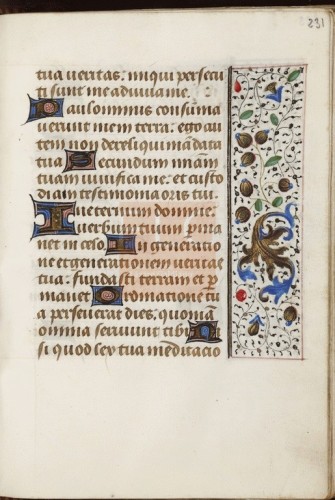 231
tua veritas. iniqui persecu
ti sunt me adiuva me.
Paulominus consūma
verunt me in terra: ego au
tem non dereliqui mādata
tua Secundum miām
tuam vivifica me: et custo
diam testimonia oris tui.
In eternum domine:
verbum tuum p̄ma
net in celo. In generatio
ne et generationem veritas
tua: fundasti terram et p̄
manet Ordinatione tu
a perseverat dies: quoniā
omnia serviunt tibi Ni
si quod lex tua meditacio